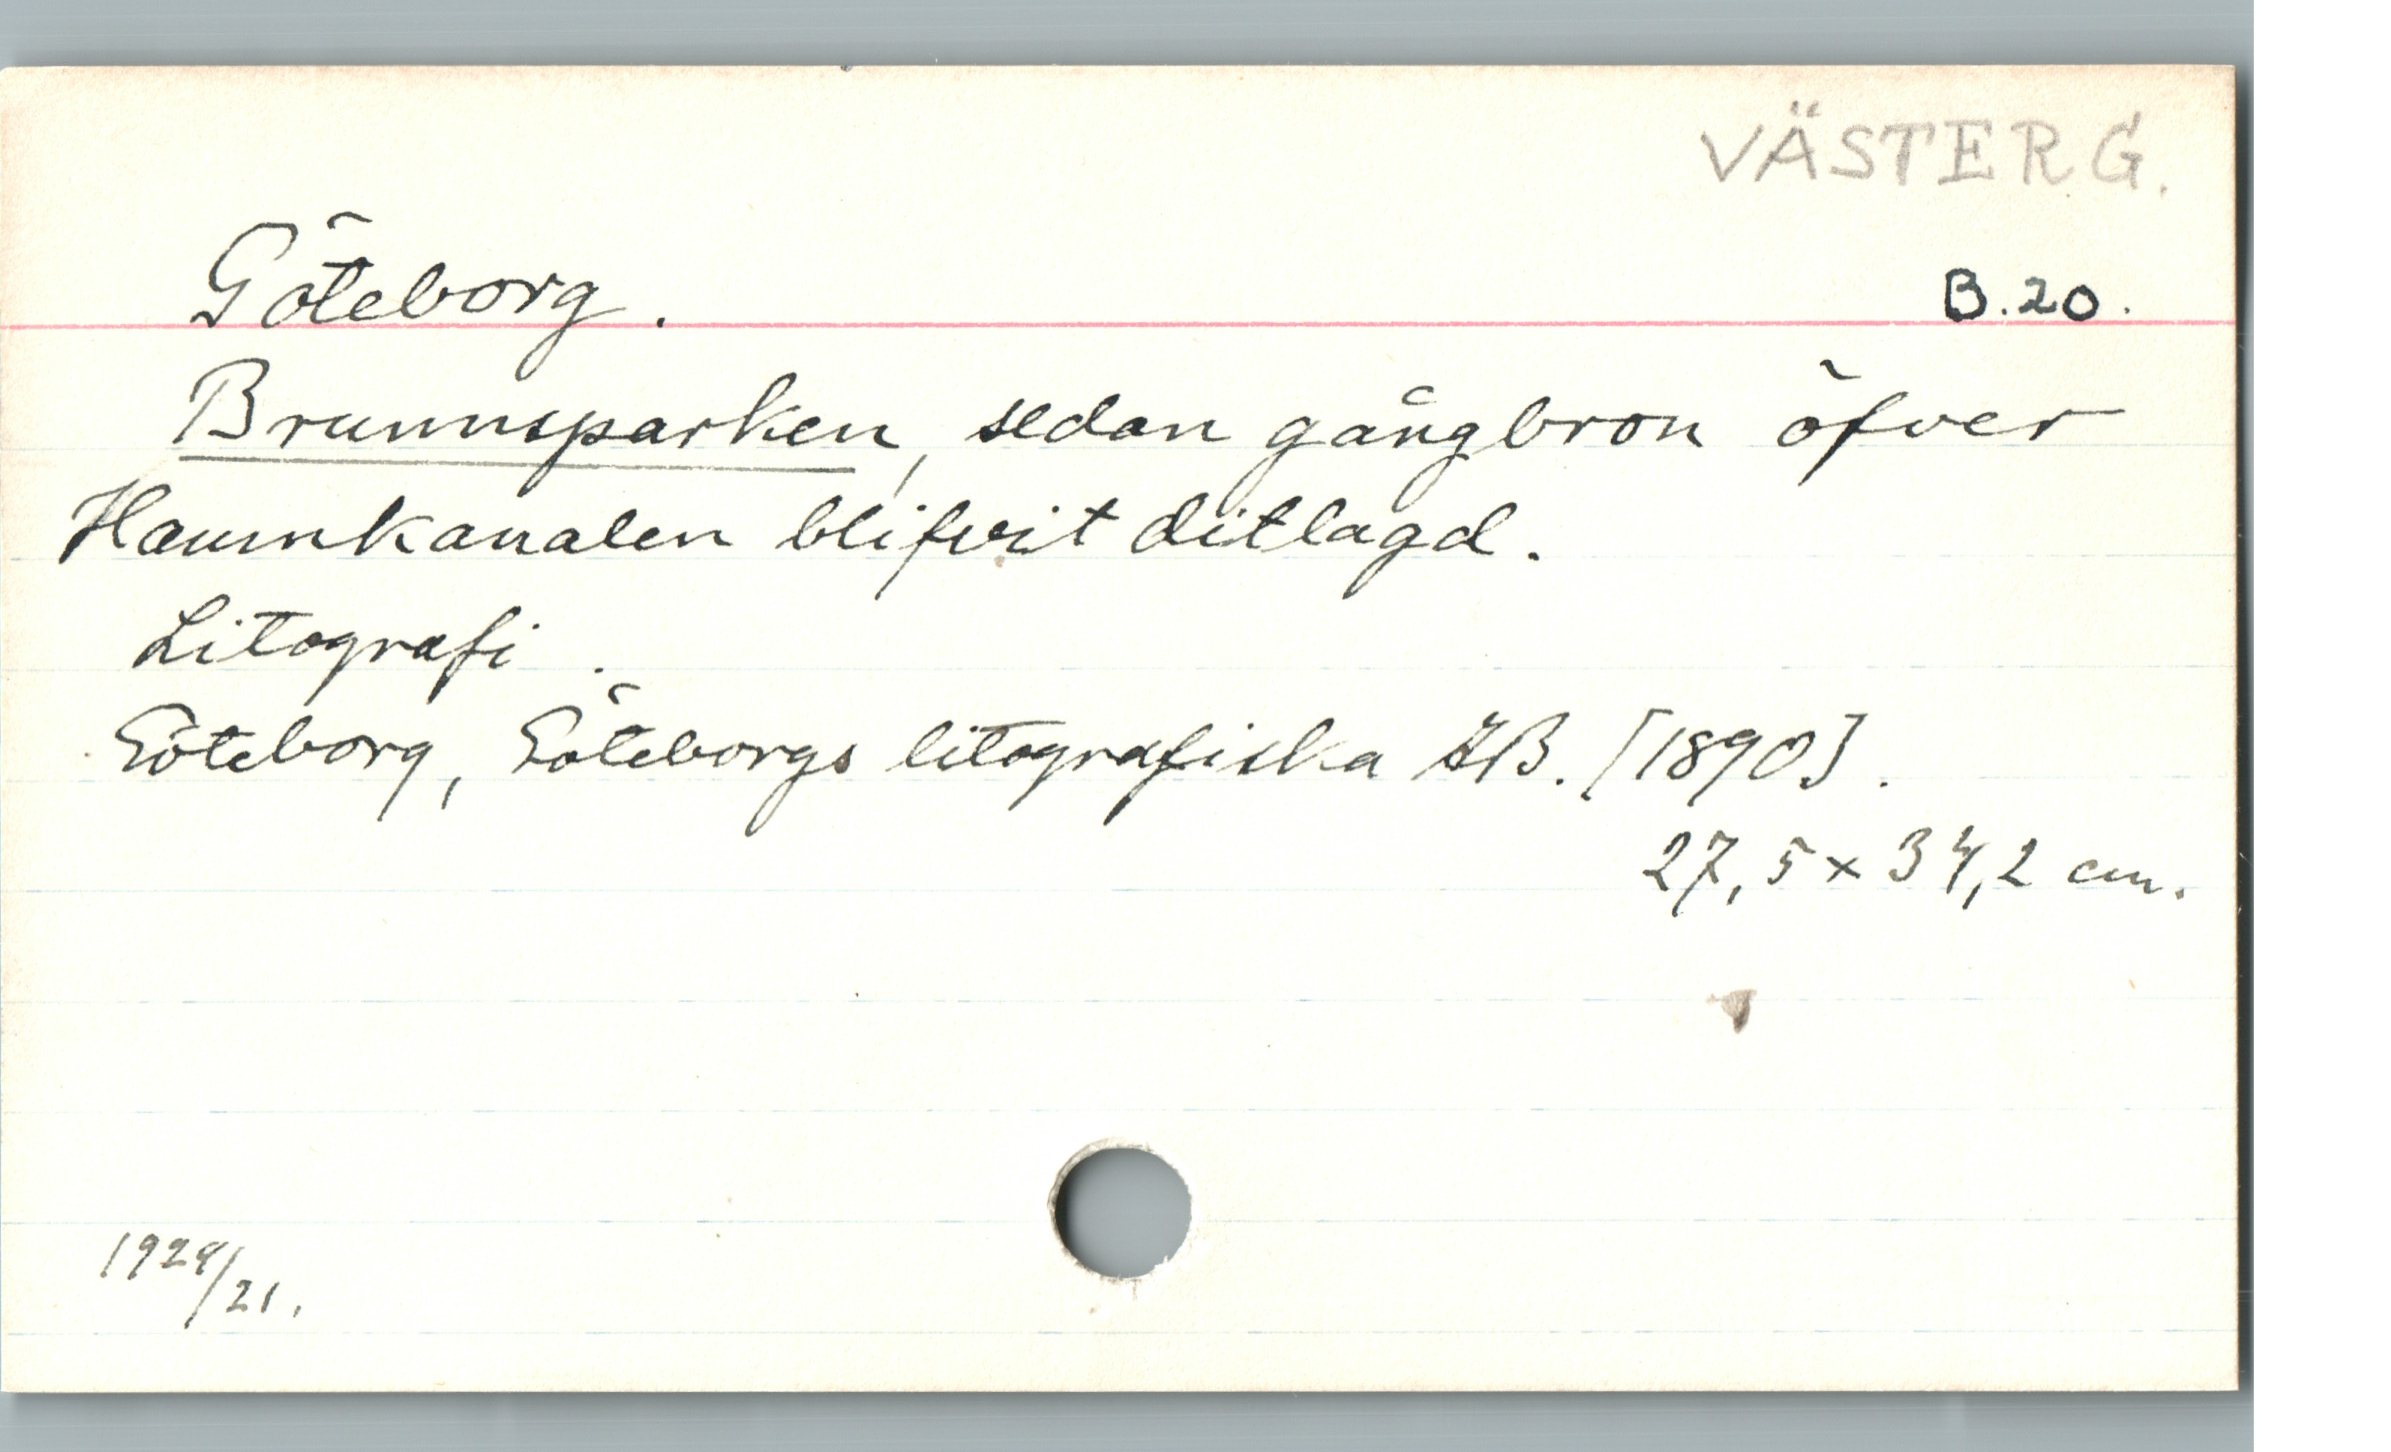 VÄSTERG.
Göteborg.
B.20.
Brunnsparken, sedan gångbron öfver
Hamnkanalen blifvit ditlagd.
Litografi.
Göteborg, Göteborgs litografiska AB. [1890].
27,5 x 34,2 cm.
1929/21.